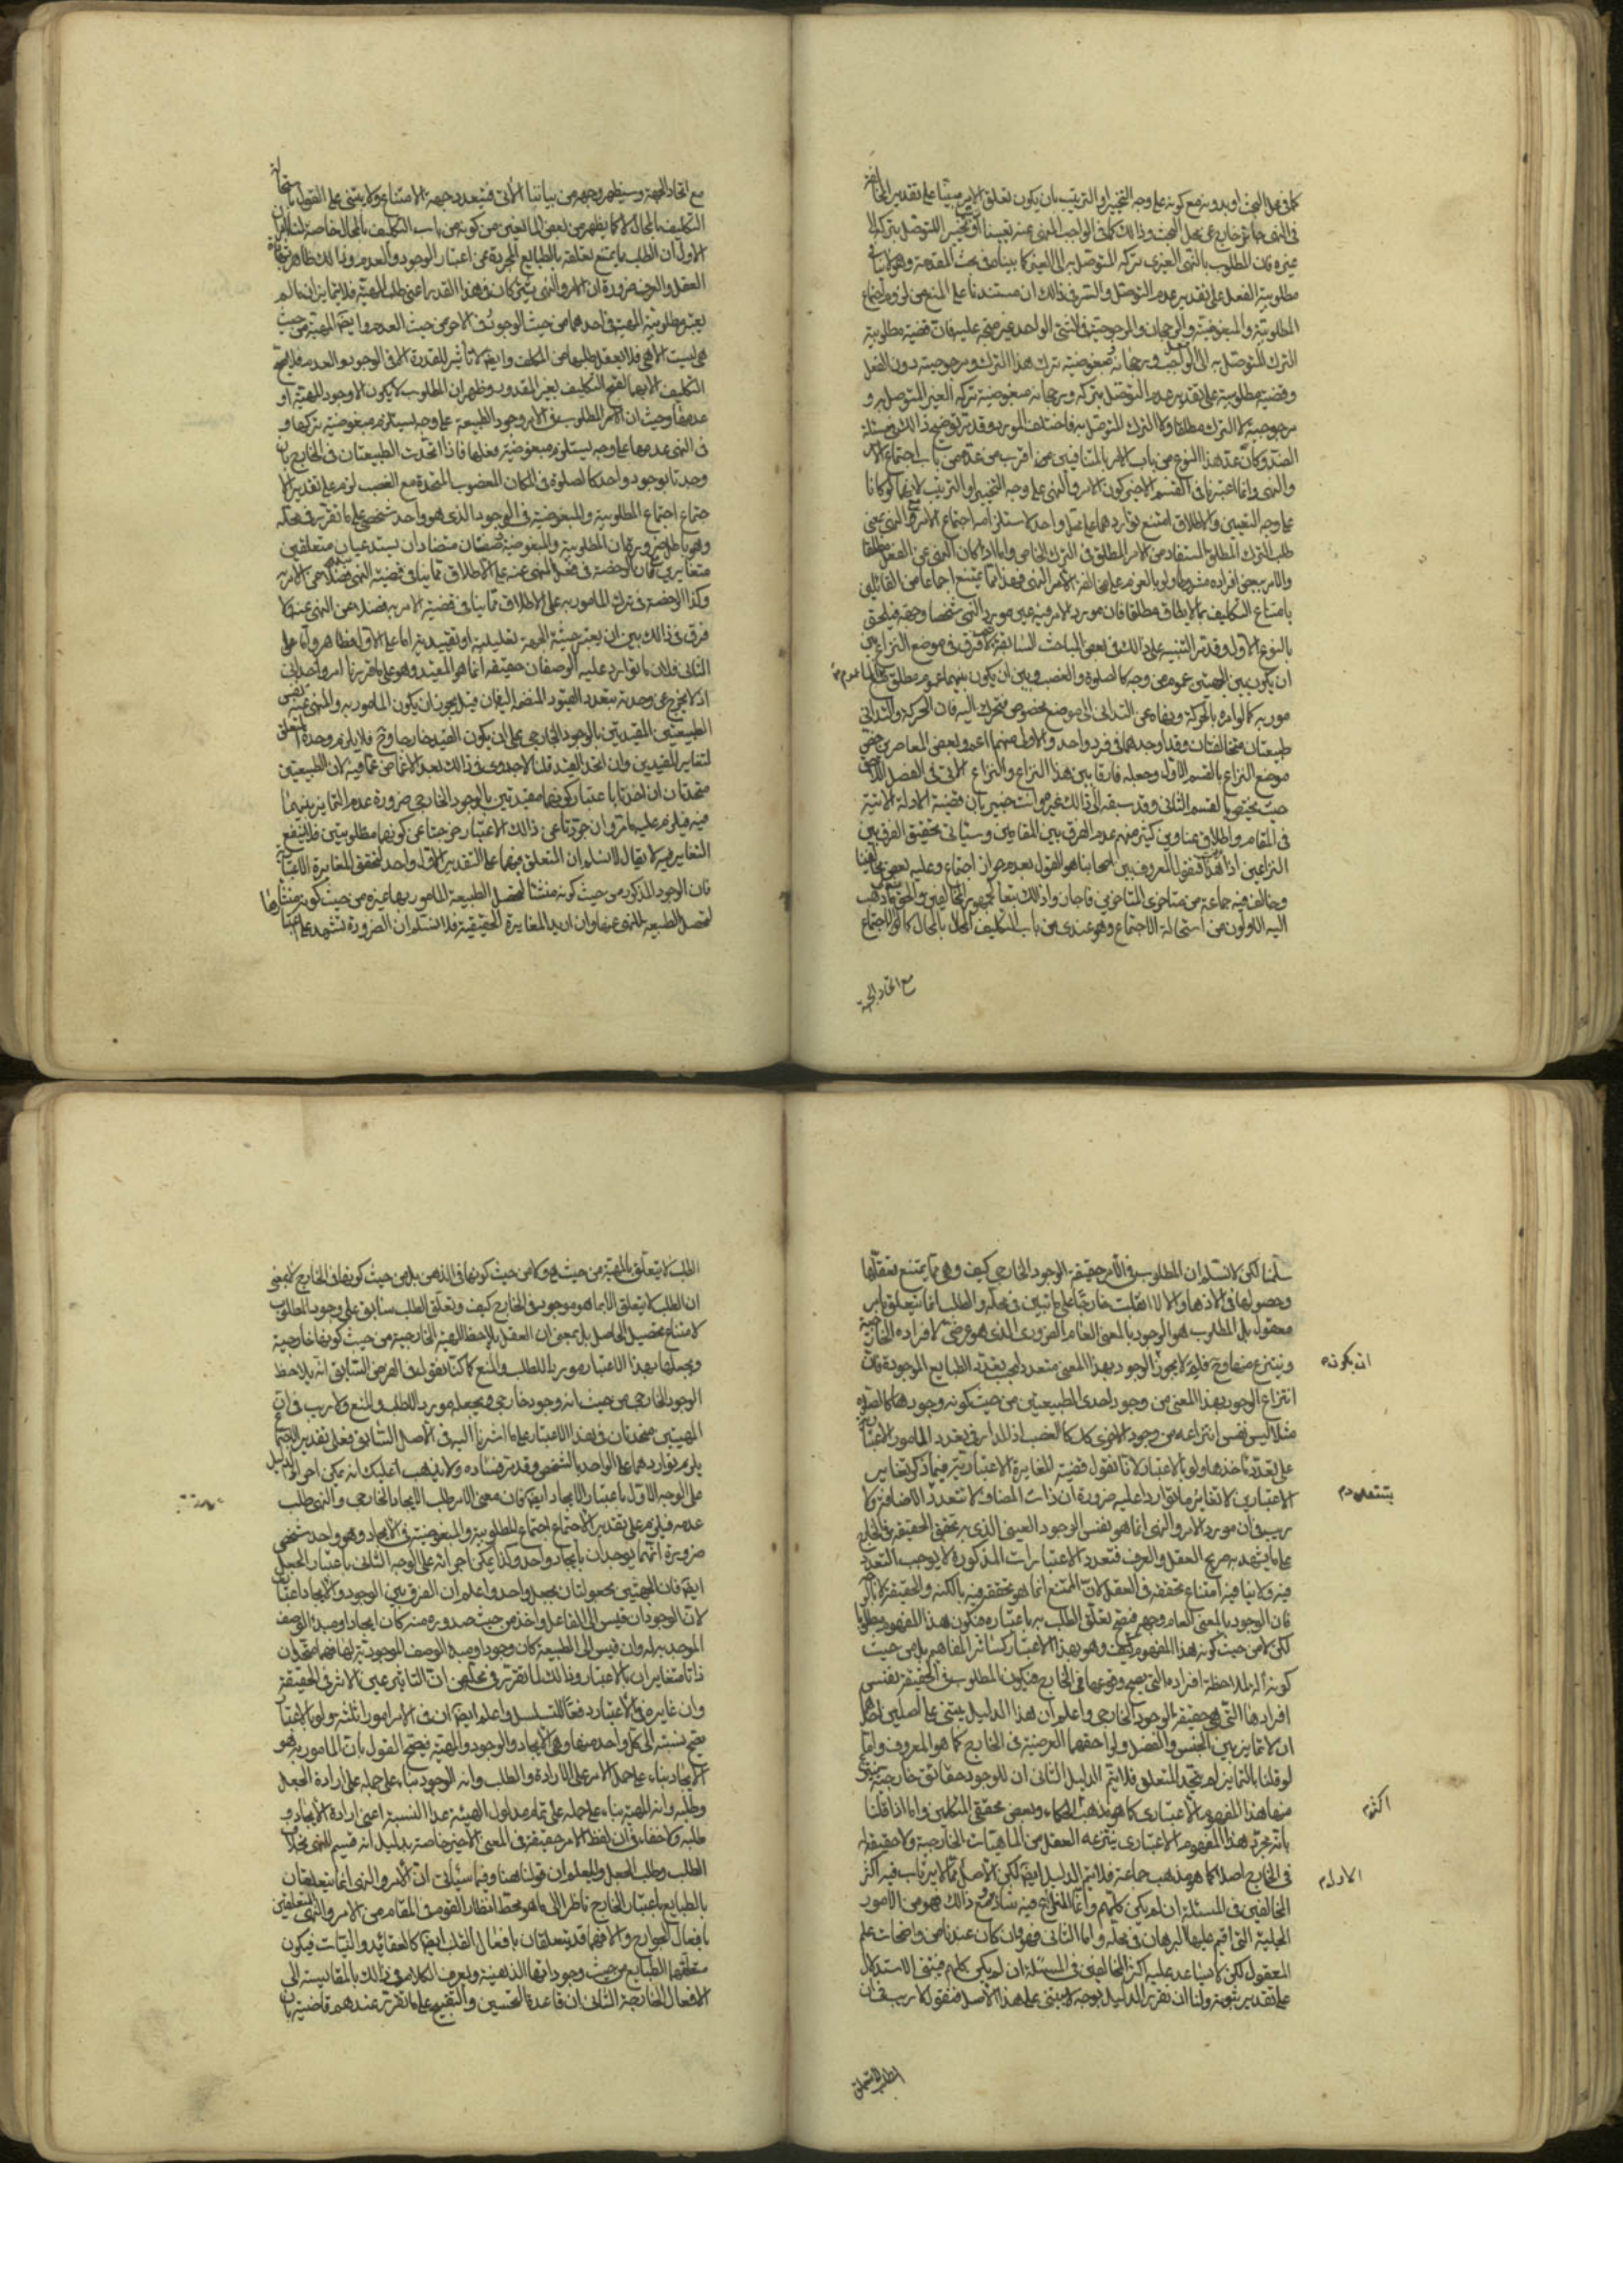 كما في محل البحث او بدونه مع كونه على وجه التخيير او الترتيب بان يكون تعلق الامر مبنيا على تقدير المخالفة
في النهي جائز خارج عن محل البحث وذلك كما في الواجب المنهي عنه تعيينا او تخييرا للتوصل بتركه الى
غيره فان المطلوب بالنهي الغيري تركه المتوصل به الى الغير كما بيناه في بحث المقدمة وهو لا ينافي
مطلوبية الفعل على تقدير عدم التوصل والسر في ذلك ان مستندنا على المنع من لزوم اجتماع
المطلوبية والمبغوضية والرجحان والمرجوحية في الشيء الواحد غير متجه عليه فان قضية مطلوبية
الترك المتوصل به الى الواجب ورجحانه مبغوضية ترك هذا الترك ومرجوحيته دون الفعل
وقضية مطلوبيته على تقدير عدم التوصل بتركه ورجحانه مبغوضية تركه الغير المتوصل به و
مرجوحيته لا الترك مطلقا ولا الترك المتوصل به فاختلف المورد وقد مر توضيح ذلك في مسئلة
الضد وكان عد هذا النوع من باب الامر بالمتنافيين اقرب من عده من باب اجتماع الامر
والنهي وانما اعتبرنا في القسم الاخير كون الامر والنهي على وجه التخيير او الترتيب لانهما لو كانا
على وجه التعيين والاطلاق امتنع تواردهما على محل واحد لاستلزامه اجتماع الامر والنهي بمعنى
طلب الترك المطلق المستفاد من الامر المطلق في الترك الخاص واما اذا كان النهي عن الفعل مطلقا
والامر ببعض افراده مشروطا ولو بالعزم على مخالفة الامر النهي فهذا مما يمتنع اجماعا من القائلين
بامتناع التكليف بما لا يطاق مطلقا فان مورد الامر فيه عين مورد النهي شخصا وجهة فيلحق
بالنوع الاول وقد مر التنبيه على ذلك في بعض المباحث السابقة ثم لا فرق في موضع النزاع بين
ان يكون بين الجهتين عموم من وجه كالصلوة والغصب وبين ان يكون بينهما عموم مطلق مع عموم الما
مور به كما لو امره بالحركة ونهاه عن التداني الى موضع مخصوص فتحرك اليه فان الحركة والتداني
طبيعتان متخالفتان وقد اوجدهما في فرد واحد والاولى منهما اعم وبعض المعاصرين خص
موضع النزاع بالقسم الاول وجعله فارقا بين هذا النزاع والنزاع الاتي في الفصل اللاحق
حيث يختص بالقسم الثاني وقد سبقه الى ذلك غيره وانت خبير بان قضية الادلة الاتية
في المقام واطلاق عناوين كثير منهم عدم الفرق بين المقامين وسياتي تحقيق الفرق بين
النزاعين اذا عرفت هذا فنقول المعروف بين اصحابنا هو القول بعدم جواز اجتماع وعليه بعض مخالفينا
وخالف فيه جماعة من متاخري المتاخرين فاجازوا ذلك تبعا لجمهور المخالفين والحق ما ذهب
اليه الاولون من استحالة الاجتماع وهو عندي من باب التكليف المحال بالمحال كما لو الاجتماع
مع اتحاد الجهة
مع اتحاد الجهة وسيظهر وجهه من بياننا الاتي فتعدد جهة الامتناع ولا يبتنى على القول باستحالة
التكليف بالمحال لا كما يظهر من بعض المانعين من كونه من باب التكليف بالمحال خاصة لنا
الاول ان الطلب مما يمتنع تعلقه بالطبايع المجردة عن اعتبار الوجود والعدم وذلك ظاهر بشهادة
العقل والعرف ضرورة ان الامر والنهي يشتركان في هذا القدر اعني طلب المهية فلا يتمايزان ما لم
يعتبر مطلوبية المهية في احدهما من حيث الوجود وفي الاخر من حيث العدم وايضا المهية من حيث
هي ليست الا هي فلا يعقل طلبها من المكلف وايضا لا تاثير للقدرة الا في الوجود والعدم فلا يصح
التكليف الا بهما لقبح التكليف بغير المقدور وظهر ان المطلوب لا يكون الا وجود المهية او
عدمها وحيث ان الامر المطلوب في الامر وجود الطبيعة على وجه يستلزم مبغوضية تركها و
في النهي عدمها على وجه يستلزم مبغوضية فعلها فاذا اتحدت الطبيعتان في الخارج بان
وجدتا بوجود واحد كالصلوة في المكان المغصوب المتحدة مع الغصب لزم على تقدير الا
جتماع اجتماع المطلوبية والمبغوضية في الوجود الذي هو واحد شخصي على ما تقرر في محله
وهو باطل ضرورة ان المطلوبية والمبغوضية صفتان متضادان يستدعيان متعلقين
متغايرين كان الرخصة في فعل المنهي عنه على الاطلاق مما ينافي قضية النهي فضلا عن الامر به
وكذا الرخصة في ترك المامور به على الاطلاق مما ينافي قضية الامر به فضلا عن النهي عنه ولا
فرق في ذلك بين ان يعتبر حيثية الجهة تعليلية او تقييدية اما على الاول فظاهر واما على
الثاني فلان ما توارد عليه الوصفان حقيقة انما هو المقيد وهو على ما قررنا امر واحد اي
اذ لا يخرج عن وحدته بتعدد القيود المنضمة اليه فان قيل يجوز ان يكون المامور به والمنهي عنه نفس
الطبيعتين المقيدتين بالوجود الخارجي على ان يكون القيد خارجا وح فلا يلزم وحدة المتعلق
لتغاير المقيدين وان اتحد القيد قلنا لا جدوى في ذلك بعد الاغماض عما فيه لان الطبيعتين
متحدتان ان اخذتا باعتبار كونهما مقيدتين بالوجود الخارجي ضرورة عدم التمايز بينهما
فيه فيلزم عليه ما مر وان جردتا عن ذلك الاعتبار خرجتا عن كونهما مطلوبيتين فلا ينفع
التغاير فيه لا يقال لا نسلم ان المتعلق منهما على التقدير الاول واحد لتحقق المغايرة الاعتبارية
فان الوجود المذكور من حيث كونه منشئا لحصول الطبيعة المامور بها غيره من حيث كونه منشئا
لحصول الطبيعة المنهي عنها وان اريد المغايرة الحقيقية فلا نسلم ان الضرورة تشهد على اعتبارها
سلمنا لكن لا نسلم ان المطلوب في الامر حقيقة الوجود الخارجي كيف وهي مما يمتنع تعقلها
وحصولها في الاذهان والا لانقلبت خارجا على ما تبين في محله والطلب انما يتعلق بامر
معقول بل المطلوب هو الوجود بالمعنى العام الضروري الذي هو عرضي لافراده الخارجية
وينتزع منها وح فلم لا يجوز الوجود بهذا المعنى متعددا بحسب تعدد الطبايع الموجودة فان
ان يكون م
انتزاع الوجود بهذا المعنى من وجود احدى الطبيعتين من حيث كونه وجودها كالصلوة
مثلا ليس نفس انتزاعه من وجود الاخرى كالغصب اذ المدار في تعدد الامور الاعتبارية
على تعدد ماخذها ولو بالاعتبار لانا نقول قضية المغايرة الاعتبارية فيما ذكر تغاير
الاعتبارين لا تغاير ما توارد عليه ضرورة ان ذات المضاف لا تتعدد الاضافة ولا
ريب في ان مورد الامر والنهي انما هو نفس الوجود العيني الذي به تحقق الحقيقة في الخارج
على ما يشهد به صريح العقل والعرف فتعدد الاعتبارات المذكورة لا يوجب التعدد
فيه ولا ينافيه امتناع تحققه في العقل لان الممتنع انما هو تحققه فيه بالكنه والحقيقة لا بالوجه
فان الوجود بالمعنى العام وجهه فيصح تعلق الطلب به باعتباره فيكون هذا المفهوم مطلوبا
لكن لا من حيث كونه هذا المفهوم كيف وهو بهذا الاعتبار كسائر المفاهيم بل من حيث
كونه آلة لملاحظة افراده التي يصح وقوعها في الخارج فيكون المطلوب في الحقيقة نفس
افرادها التي هي حقيقة الوجود الخارجي واعلم ان هذا الدليل يبتنى على اصلين احدهما
ان لا تمايز بين الجنس والفصل ولواحقهما العرضية في الخارج كما هو المعروف واما
لو قلنا بالتمايز لم يتحد المتعلق فلا يتم الدليل الثاني ان للوجود حقائق خارجية ينتزع
منها هذا المفهوم الاعتباري كما هو مذهب الحكماء وبعض محققي المتكلمين واما اذا قلنا
اكثر م
بانه مجرد هذا المفهوم الاعتباري ينتزعه العقل من الماهيات الخارجية ولا حقيقة له
في الخارج اصلا كما هو مذهب جماعة فلا يتم الدليل ايضا لكن الاصل مما لا يرتاب فيه اكثر
الاول م
المخالفين في المسئلة ان لم يكن كلهم وانما المخالف فيه شاذ ومع ذلك فهو من الامور
الجلية التي اقيم عليها البرهان في محله واما الثاني فهو وان كان عندنا من واضحات علم
المعقول لكن لا يساعد عليه اكثر المخالفين في المسئلة ان لم يكن كلهم فيبتنى الاستدلال
على تقدير ثبوته ولنا ان نقرر الدليل بوجه لا يبتنى على هذا الاصل فنقول لا ريب في ان
الطلب لا يتعلق
الطلب لا يتعلق بالمهية من حيث هي ولا من حيث كونها في الذهن بل من حيث كونها في الخارج لا بمعنى
ان الطلب لا يتعلق الا بما هو موجود في الخارج كيف وتعلق الطلب سابق على وجود المطلوب
لامتناع تحصيل الحاصل بل بمعنى ان العقل يلاحظ المهية الخارجية من حيث كونها خارجية
ويجعلها بهذا الاعتبار موردا للطلب والمنع كما كنا نقول في الفرض السابق انه يلاحظ
الوجود الخارجي من حيث انه وجود خارجي ويجعله موردا للطلب والمنع ولا ريب في ان
المهيتين متحدتان في هذا الاعتبار على ما اشرنا اليه في الاصل السابق فعلى تقدير الاجتماع
يلزم تواردهما على الواحد بالشخص وقد مر فساده ولا يذهب عليك انه يمكن اجراء الدليل
على الوجه الاول باعتبار الايجاد ايضا فان معنى الامر طلب الايجاد الخارجي والنهي طلب
عدمه فيلزم على تقدير الاجتماع اجتماع المطلوبية والمبغوضية في الايجاد وهو واحد شخصي
ضرورة انهما يوجدان بايجاد واحد وكذا يمكن اجرائه على الوجه الثاني باعتبار الجعل
ايضا فان الجهتين مجعولتان بجعل واحد واعلم ان الفرق بين الوجود والايجاد اعتباري
لان الوجود ان قيس الى الفاعل واخذ من حيث صدوره منه كان ايجادا ومبدء الوصف
الموجد به له وان قيس الى الطبيعة كان وجودا ومبدء الوصف الموجودية لها فهما متحدان
ذاتا متغايران بالاعتبار وذلك لما تقرر في محله من ان التاثير عين الاثر في الحقيقة
وان غايره في الاعتبار دفعا للتسلسل واعلم ايضا ان في الامر امور ثلثة ولو بالاعتبار
يصح نسبته الى كل واحد منها وهي الايجاد والوجود والمهية فيصح القول بان المامور به هو
الايجاد بناء على حمل الامر على الارادة والطلب وانه الوجود بناء على حمله على ارادة الجعل
وطلبه وانه المهية بناء على حمله على تمام مدلول الهيئة عدا النسبة اعني ارادة الايجاد و
طلبه ولا خفاء في ان لفظ الامر حقيقة في المعنى الاخير خاصة بدليل انه قسيم للنهي بخلاف
الطلب وطلب الجعل وليعلم ان قولنا هنا وفيما سياتي ان الامر والنهي انما يتعلقان
بالطبايع باعتبار الخارج ناظر الى ما هو محط انظار القوم في المقام من الامر والنهي المتعلقين
بافعال الجوارح والا فهما قد يتعلقان بافعال القلب ايضا كالعقائد والنيات فيكون
متعلقهما الطبايع من حيث وجوداتها الذهنية ويعرف الكلام في ذلك بالمقايسة الى
الافعال الخارجة الثاني ان قاعدة التحسين والتقبيح على ما تقرر عندهم قاضية بان